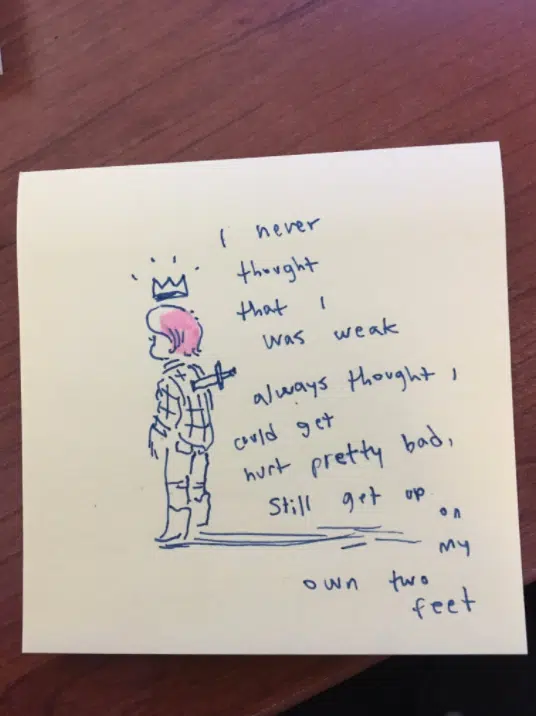 I never
thought
that I
was weak
always thought I
could get
hurt pretty bad,
Still get up
on
my
own two
feet